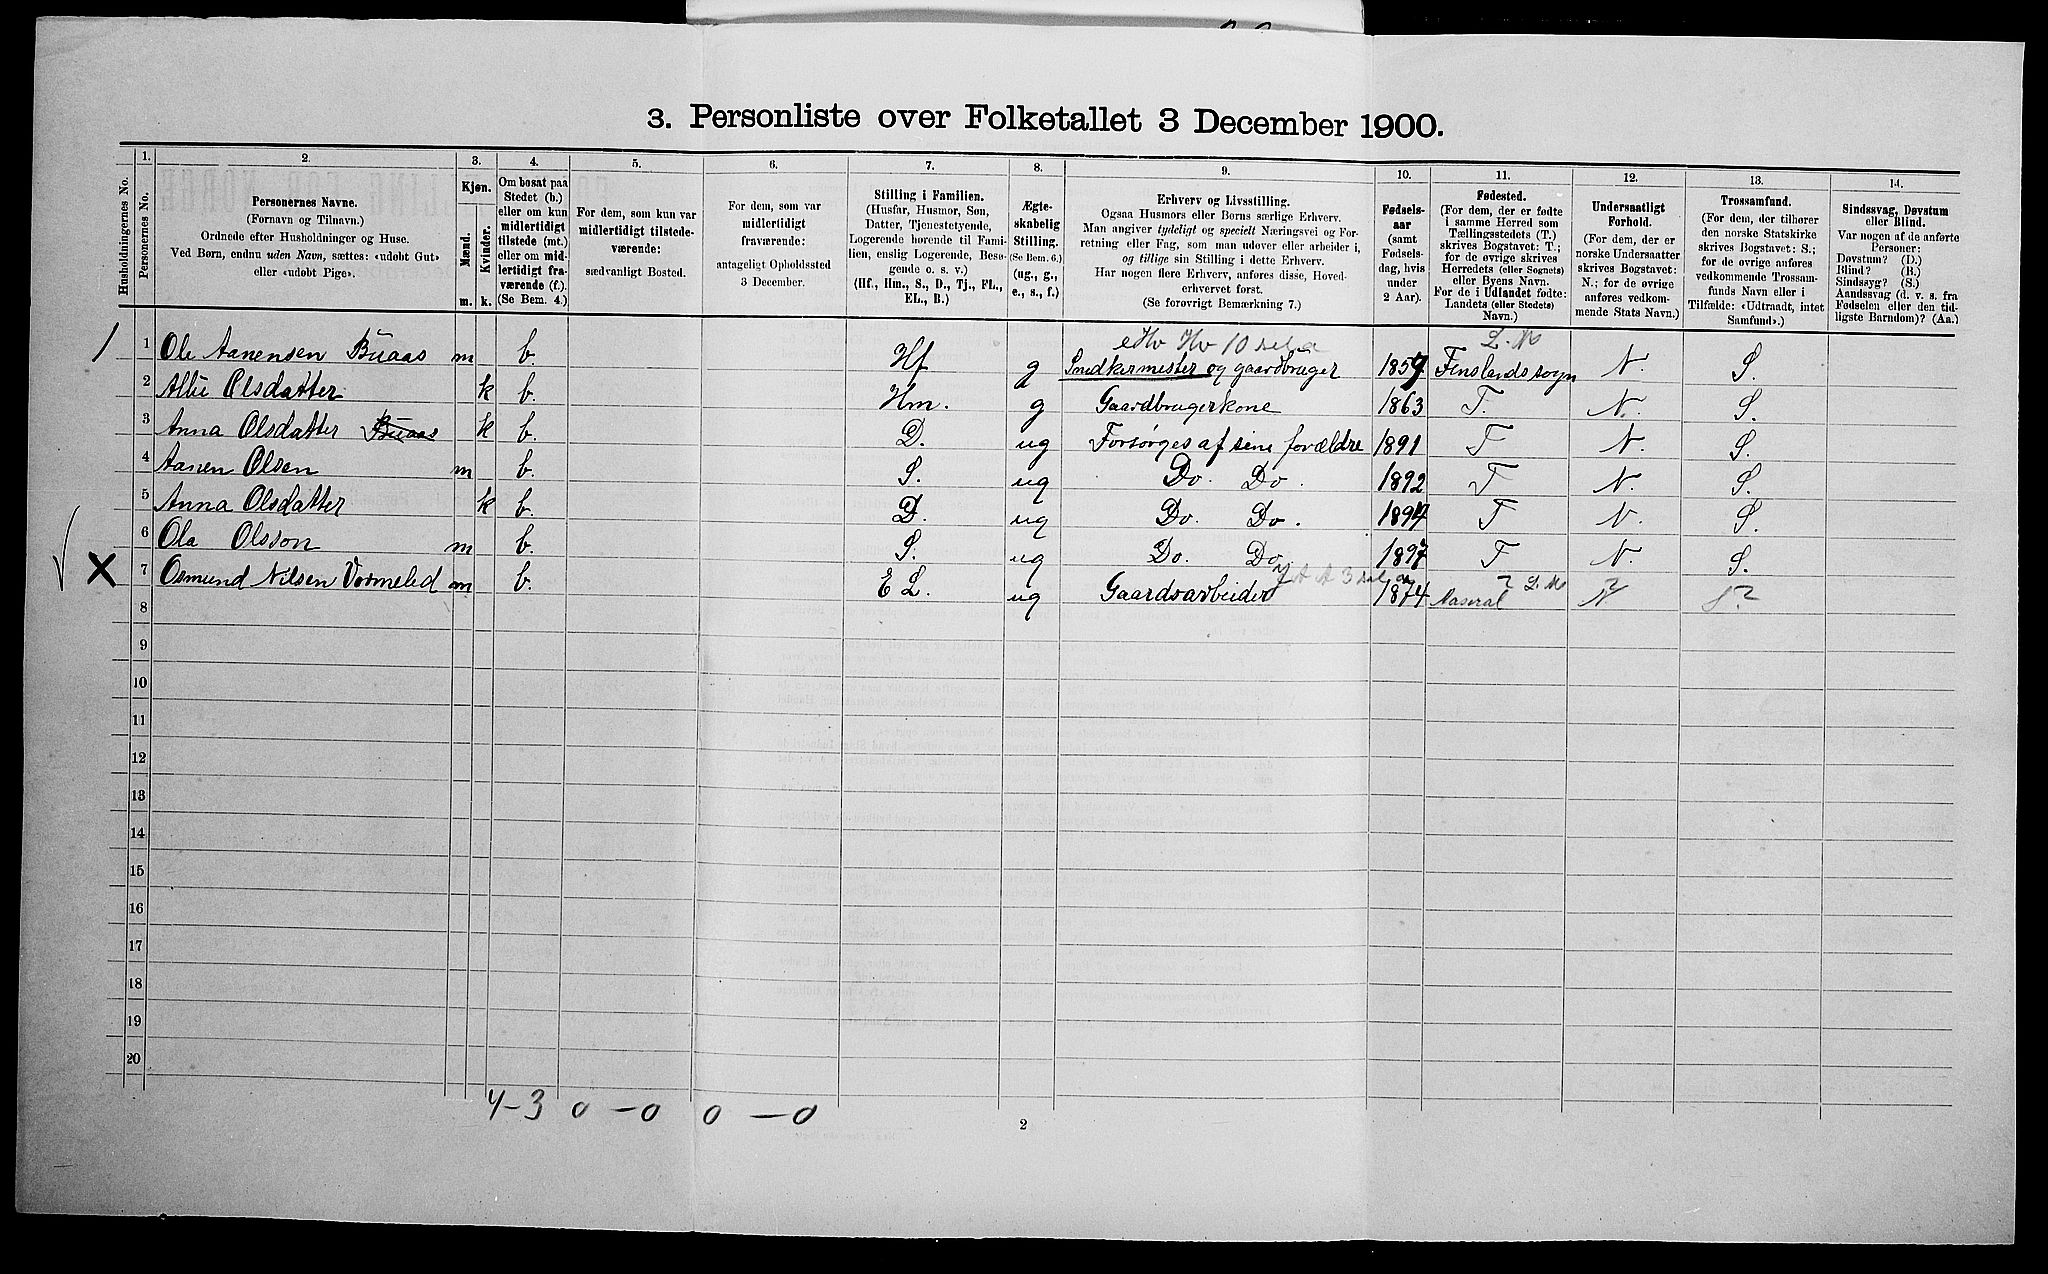 3. Personliste over Folketallet 3 December 1900.
Husholdningernes No.
1.
Personernes No.
2.
Personernes Navne.
(Fornavn og Tilnavn.)
Ordnede efter Husholdninger og Huse.
Ved Børn, endnu uden Navn, sættes: «udøbt Gut»
eller «udøbt Pige».
3.
Kjøn.
Mænd.
Kvinder.
m. k.
4.
Om bosat paa
Stedet (b.)
eller om kun
midlertidigt
tilstede (mt.)
eller om mid-
lertidigt fra-
værende (f.).
(Se Bem. 4.)
5.
For dem, som kun var
midlertidigt tilstede-
værende:
sædvanligt Bosted.
6.
For dem, som var
midlertidigt
fraværende:
antageligt Opholdssted
3 December.
7.
Stilling i Familien.
(Husfar, Husmor, Søn,
Datter, Tjenestetyende,
Logerende hørende til Fami-
lien, enslig Logerende, Besø-
gende o. s. v.)
(Hf., Hm., S., D., Tj., FL.,
EL., B.)
8.
Ægte-
skabelig
Stilling.
(Se Bem. 6.)
(ug., g.,
e., s., f.)
9.
Erhverv og Livsstilling.
Ogsaa Husmors eller Børns særlige Erhverv.
Man angiver tydeligt og specielt Næringsvei og For-
retning eller Fag, som man udøver eller arbeider i,
og tillige sin Stilling i dette Erhverv.
Har nogen flere Erhverv, anføres disse, Hoved-
erhvervet først.
(Se forøvrigt Bemærkning 7.)
10.
Fødsels-
aar
(samt
Fødsels-
dag, hvis
under
2 Aar).
11.
Fødested.
(For dem, der er fødte
i samme Herred som
Tællingsstedets (T.)
skrives Bogstavet: T.;
for de øvrige skrives
Herredets (eller Sognets)
eller Byens Navn.
For de i Udlandet fødte:
Landets (eller Stedets)
Navn.)
12.
Undersaatligt
Forhold.
(For dem, der er
norske Undersaatter
skrives Bogstavet:
N.; for de øvrige
anføres vedkom-
mende Stats Navn.)
13.
Trossamfund.
(For dem, der tilhører
den norske Statskirke
skrives Bogstavet: S.;
for de øvrige anføres
vedkommende Trossam-
funds Navn eller i
Tilfælde: «Udtraadt, intet
Samfund».)
14.
Sindssvag, Døvstum
eller Blind.
Var nogen af de anførte
Personer:
Døvstum? (D.)
Blind? (B.)
Sindssyg? (S.)
Aandssvag (d. v. s. fra
Fødselen eller den tid-
ligste Barndom)? (Aa.)
Hv 10 L. M
1 1 Ole Aanensen Buaas m b. Hf g Snedkermester og gaardbruger 1859 Finslands sogn N. S.
2 Olsdatter k b. Hm. g Gaardbrugerkone 1863 T. N. S.
3 Anna Olsdatter Buaas k b. D. ug Forsørges af sine forældre 1891 T N. S.
4 Aanen Olsen m b. S. ug Do. Do. 1892 T N. S.
5 Anna Olsdatter k b. D. ug Do. Do. 1894 T N. S.
6 Ola Olsson m b. S. ug Do. Do. 1897 T N. S.
X 7 Osmund Nilsen Vormelid m b. E L. ug Gaardsarbeider 1874 ? L. M N ? S ?
8
9
10
11
12
13
14
15
16
17
18
19
20
4-3 0-0 0-0
2